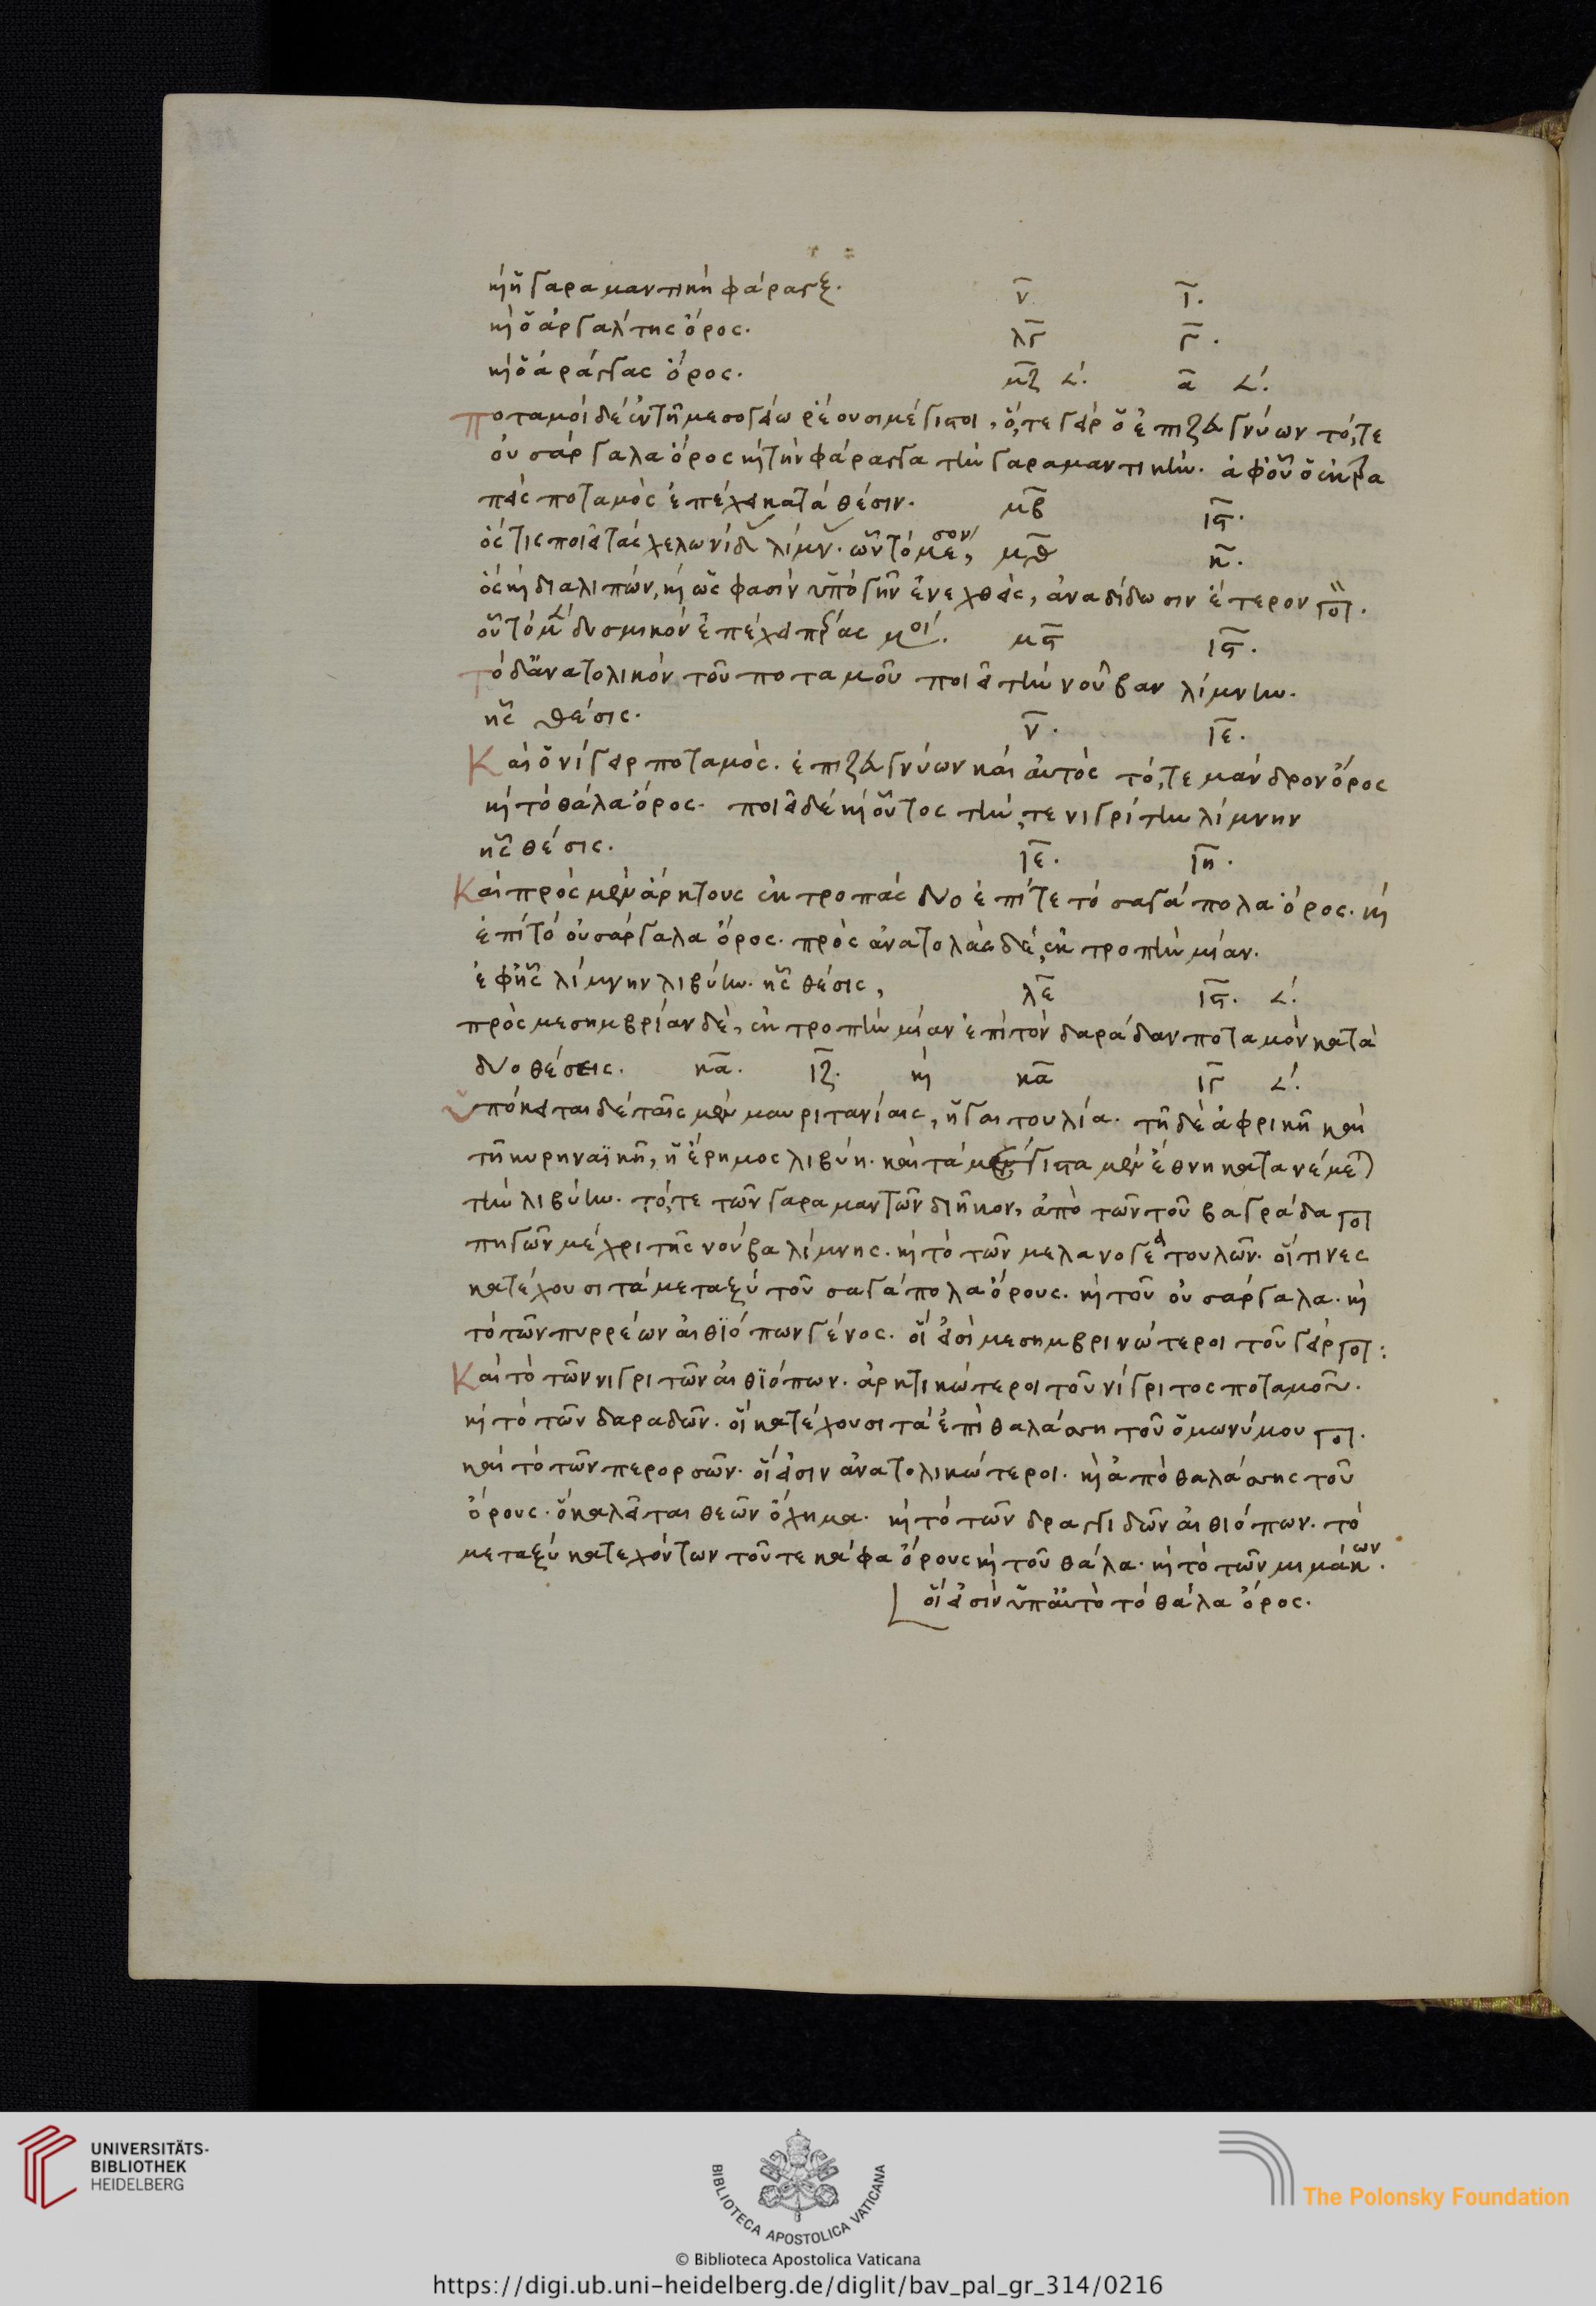 καὶ ἡ γαραμαντικὴ φάραγξ. ν ι.
καὶ ὁ ἀργαλίτης ὄρος. λγ γ.
καὶ ὁ ἀράγγας ὄρος. μζ 𐅵. α 𐅵.
ποταμοὶ δὲ ἐν τῆ μεσογείω ῥέουσι μέγιστοι, ὅ,τε γεὶρ ὁ ἐπιζευγνύων τό,τε
ουσάργαλα ὄρος καὶ τὴν φάραγγα τὴν γαραμαντικήν. ἀφ' οὗ ὁ ἐκτρα
πεὶς ποταμὸς ἐπέχει κατὰ θέσιν. μβ ις.
ὅστις ποιεῖ τὰς χελωνίδ λίμν. ὧν τὸ μέσον, μθ κ.
ὃς καὶ διαλιπών, καὶ ὥς φασιν ὑπὸ γῆν ἐνεχθεὶς, ἀναδίδωσιν ἕτερον ποτ.
οὗ τὸ μ δυσμικὸν ἐπέχει πέρας μοί. μς ις.
τὸ δ' ἀνατολικὸν τοῦ ποταμοῦ ποιεῖ τὴν νοῦβαν λίμνην.
ἧς θέσις. ν. ιε.
Καὶ ὁ νίγειρ ποταμὸς. ἐπιζευγνύων καὶ αὐτὸς τό,τε μάνδρον ὄρος
καὶ τὸ θάλα ὄρος. ποιεῖ δὲ καὶ οὗτος τήν,τε νιγρίτην λίμνην
ἧς θέσις. ιε. ιη.
Καὶ πρὸς μὲν ἄρκτους ἐκτροπὰς δύο ἐπί τε τὸ σαγάπολα ὄρος. καὶ
ἐπὶ τὸ ουσάργαλα ὄρος. πρὸς ἀνατολὰς δέ, ἐκτροπὴν μίαν.
ἐφ' ἧς λίμνην λιβύην. ἧς θέσις, λε ις. 𐅵.
πρὸς μεσημβρίαν δὲ, ἐκτροπὴν μίαν ἐπὶ τὸν δαράδαν ποταμὸν κατὰ
δύο θέσεις. κα. ιζ. καὶ κα ιγ 𐅵.
ὑπόκειται δὲ ταῖς μὲν μαυριτανίαις, ἡ γαιτουλία. τῆ δὲ ἀφρικῆ καὶ
τῆ κυρηναϊκῆ, ἡ ἔρημος λιβύη. καὶ τὰ μέγιστα μὲν ἔθνη κατανέμεται
τὴν λιβύην. τό,τε τῶν γαραμαντῶν διῆκον, ἀπὸ τῶν τοῦ βαγράδα ποτ
πηγῶν μέχρι τῆς νούβα λίμνης. καὶ τὸ τῶν μελανογετουλῶν. οἵτινες
κατέχουσι τὰ μεταξὺ τοῦ σαγάπολα ὄρους. καὶ τοῦ ουσάργαλα. καὶ
τὸ τῶν πυρρέων αἰθϊόπων γένος. οἵ εἰσι μεσημβρινώτεροι τοῦ γεὶρ ποτ:
Καὶ τὸ τῶν νιγριτῶν αἰθϊόπων. ἀρκτικώτεροι τοῦ νίγριτος ποταμοῦ.
καὶ τὸ τῶν δαραδῶν. οἳ κατέχουσι τὰ ἐπὶ θαλάσση τοῦ ὁμωνύμου ποτ.
καὶ τὸ τῶν περορσῶν. οἵ εἰσιν ἀνατολικώτεροι. καὶ ἀπὸ θαλάσσης τοῦ
ὄρους. ὃ καλεῖται θεῶν ὄχημα. καὶ τὸ τῶν δραγγιδῶν αἰθιόπων. τὸ
μεταξὺ κατεχόντων τοῦ τε κάφα ὄρους καὶ τοῦ θάλα. καὶ τὸ τῶν μιμάκων.
οἵ εἰσιν ὑπ' αὐτὸ τὸ θάλα ὄρος.
UNIVERSITÄTS-
BIBLIOTHEK
HEIDELBERG
BIBLIOTECA APOSTOLICA VATICANA
The Polonsky Foundation
© Biblioteca Apostolica Vaticana
https://digi.ub.uni-heidelberg.de/diglit/bav_pal_gr_314/0216